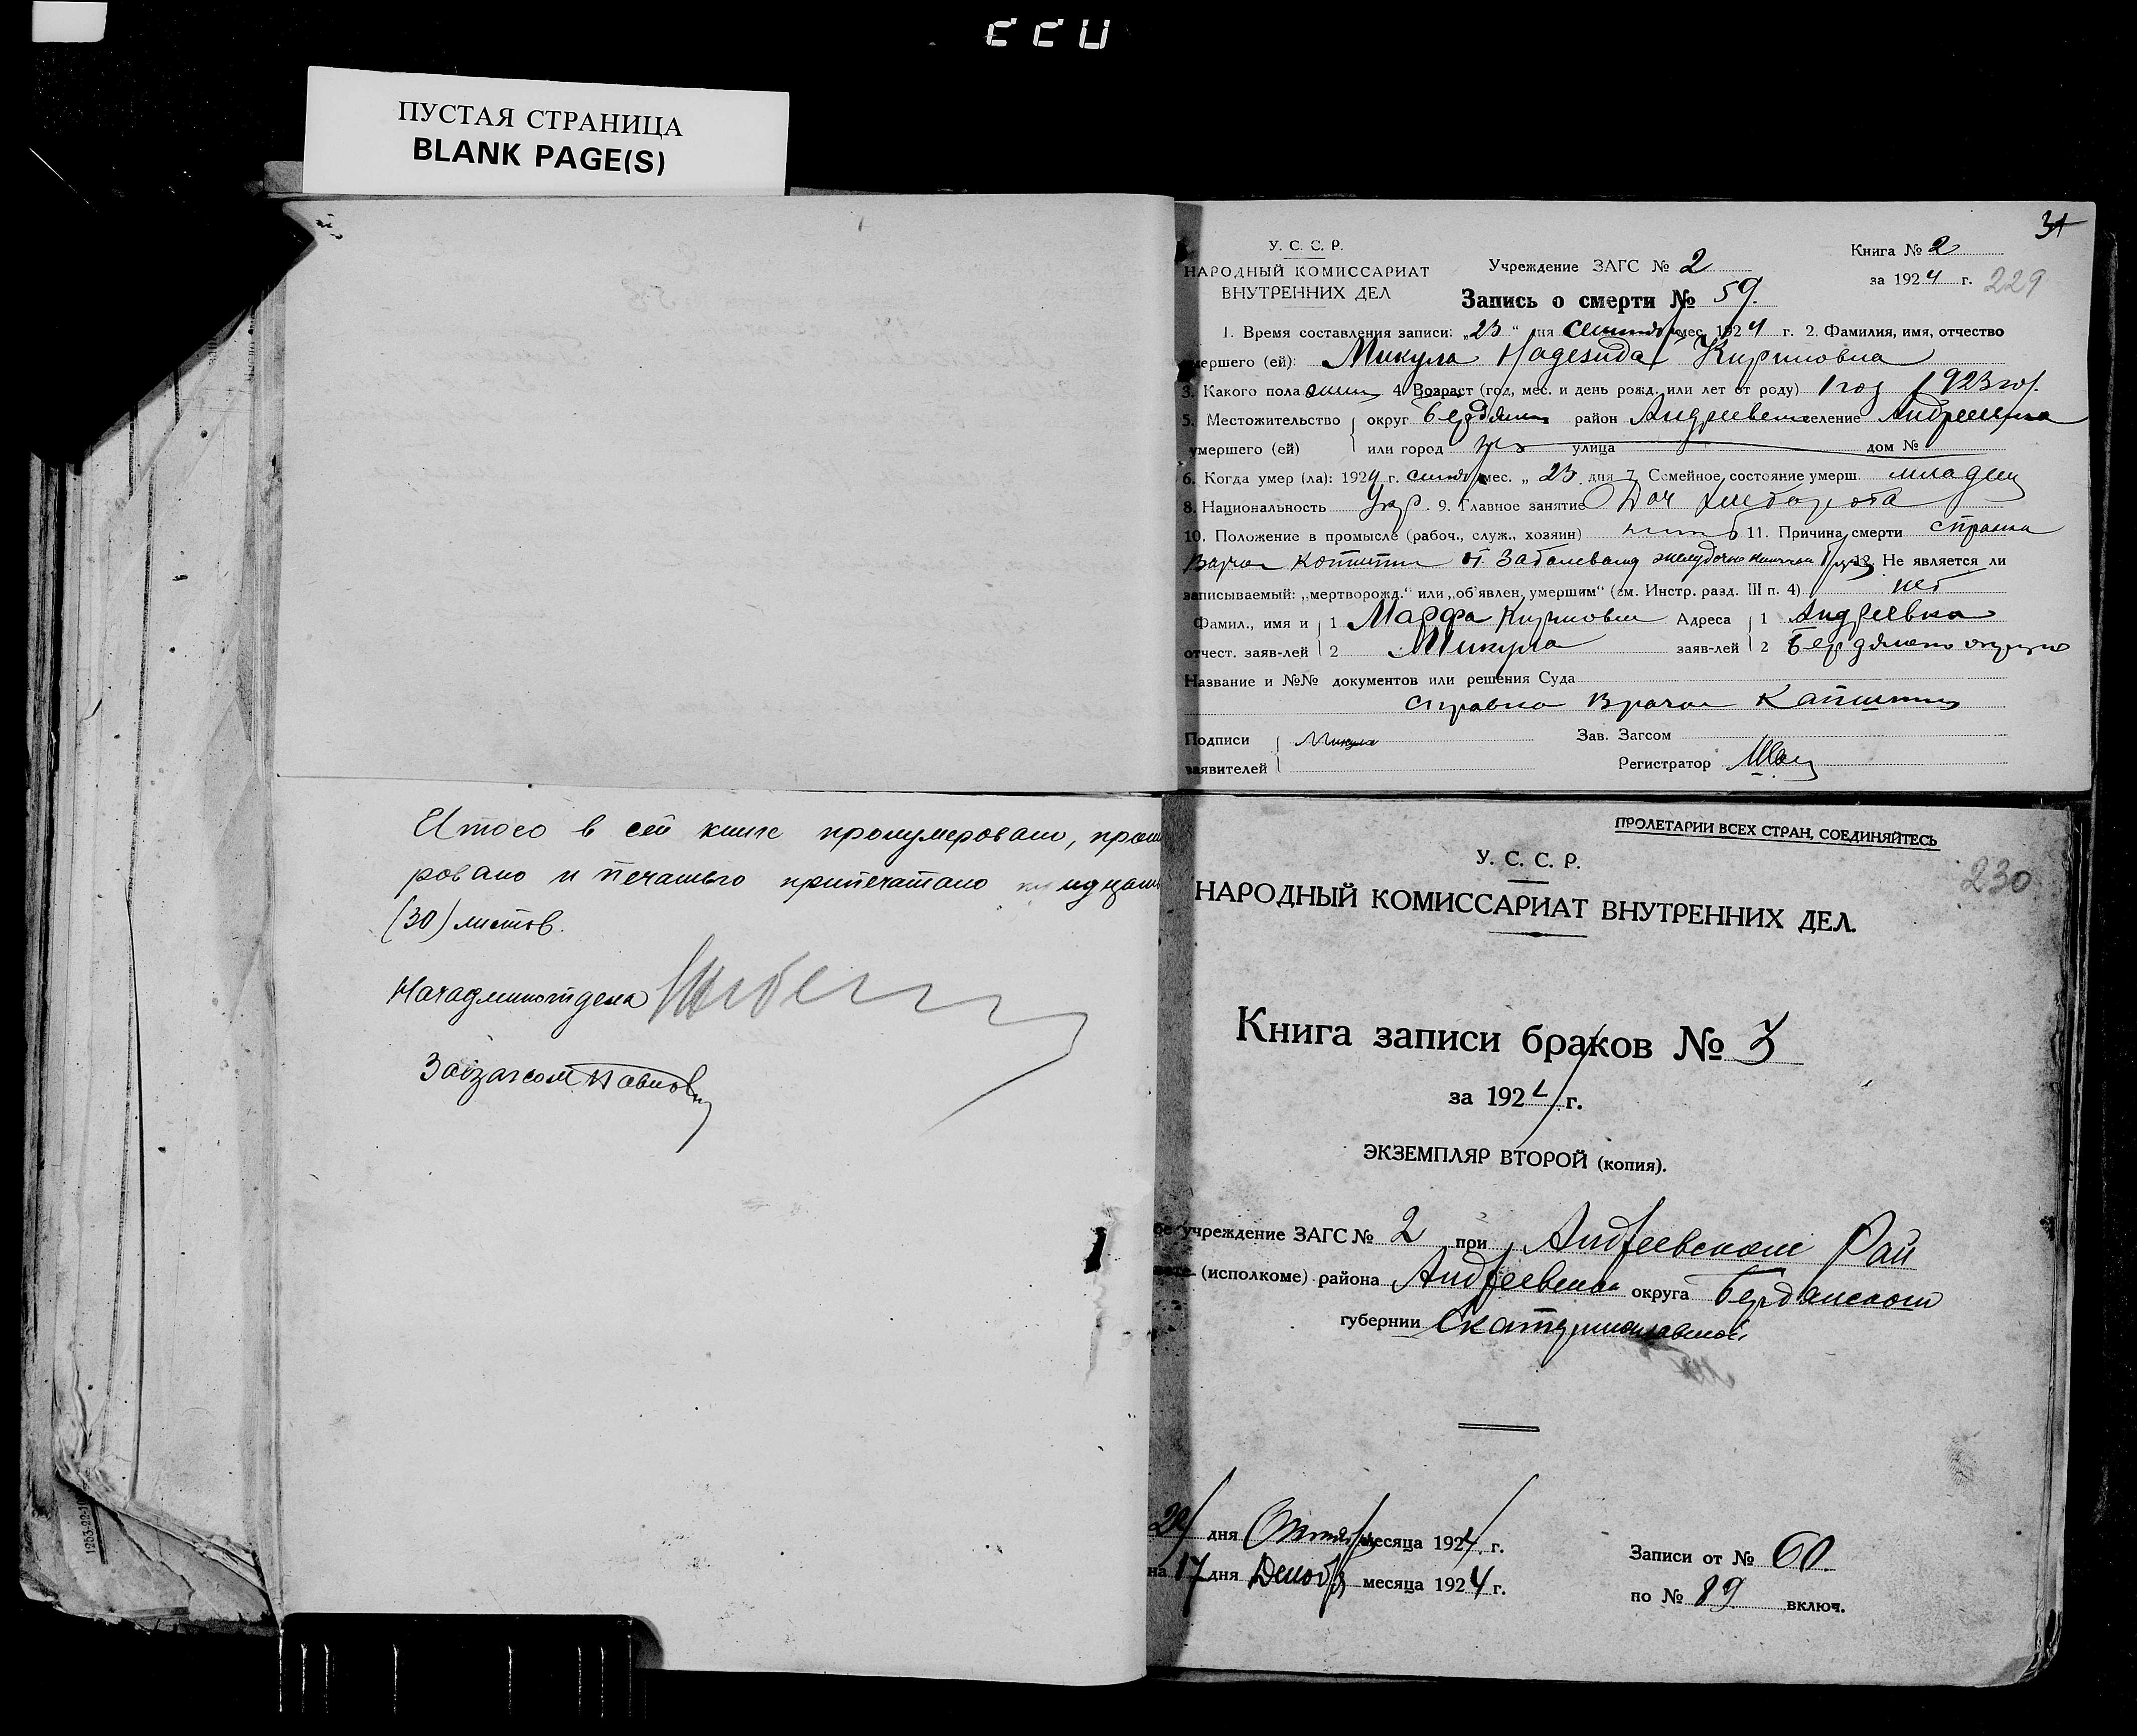 ПУСТАЯ СТРАНИЦА
BLANK PAGE(S)
31
У. С. С. Р.
НАРОДНЫЙ КОМИССАРИАТ
ВНУТРЕННИХ ДЕЛ
Учреждение ЗАГС № 2
Книга № 2
за 1924 г. 229
Запись о смерти № 59.
1. Время составления записи: „23“ дня мес. 1924 г. 2. Фамилия, имя, отчество
умершего (ей): Микула Надежда Кириловна
3. Какого пола жен 4. Возраст (год, мес. и день рожд. или лет от роду) 1 год 1923 г.
5. Местожительство округ Бердян район Андреевск селение Андреевка
умершего (ей) или город улица дом №
6. Когда умер (ла): 1924 г. мес. „ 23 дня 7. Семейное состояние умерш. младен
8. Национальность Укр. 9. Главное занятие Доч хлебороба
10. Положение в промысле (рабоч., служ., хозяин) 11. Причина смерти справка
Врача от заболевания желудочно 12. Не является ли
записываемый: „мертворожд.“ или „об'явлен. умершим“ (см. Инстр. разд. III п. 4) нет
Фамил., имя и 1 Марфа Кириловна Адреса 1 Андреевка
отчест. заяв-лей 2 Микула заяв-лей 2 Бердянского округа
Название и №№ документов или решения Суда
справка Врача
Подписи Микула Зав. Загсом
заявителей Регистратор
Итого в сей книге пронумеровано, прошну
ровано и печатью припечатано
(30) листов.
Начадминотдела
Завзагсом
ПРОЛЕТАРИИ ВСЕХ СТРАН, СОЕДИНЯЙТЕСЬ
У. С. С. Р.
230
НАРОДНЫЙ КОМИССАРИАТ ВНУТРЕННИХ ДЕЛ.
Книга записи браков № 3
за 1924 г.
ЭКЗЕМПЛЯР ВТОРОЙ (копия).
учреждение ЗАГС № 2 при Андреевском Рай
(исполкоме) района Андреевском округа Бердянском
губернии Екатеринославской
дня месяца 1924 г.
на 17 дня Декабр месяца 1924 г.
Записи от № 60.
по № 89 включ.